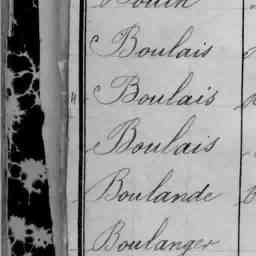 Boulais
" Boulais
Boulais
Boulande
Boulanger